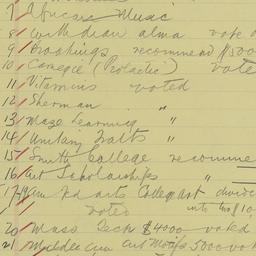 7 African Music
8 alma vote
9 Brookings recommend $500
10 Carnegie (Prolactic) vote
11 Vitamins voted
12 Sherman "
13 Maze Learning "
14 Unitary Traits "
15 Smith College recomme
16 Art Scholarships "
17-19 arts College art divide
voted into
20 Mass Tech $4000 voted
21 Art 5000 vot